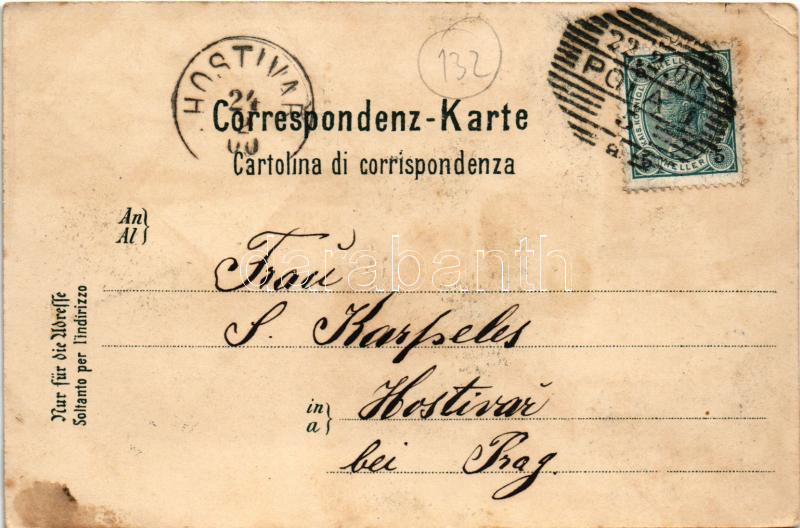 HOSTIVAŘ
24
00
132
22 00
PO
4
KAIS. KÖNIGL.
5 HELLER 5
Correspondenz-Karte
Cartolina di corrispondenza
An
Al
Frau
S. Karpeles
in
a
Hostivař
bei Prag.
Nur für die Adresse
Soltanto per l'indirizzo
darabanth